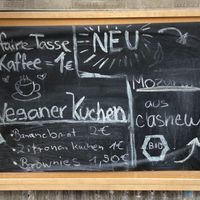 faire Tasse
Kaffee = 1€
NEU
Veganer Kuchen
• Bananebrot 2€
• Zitronen kuchen 1€
• Brownies 1,50€
aus
cashew
BIO